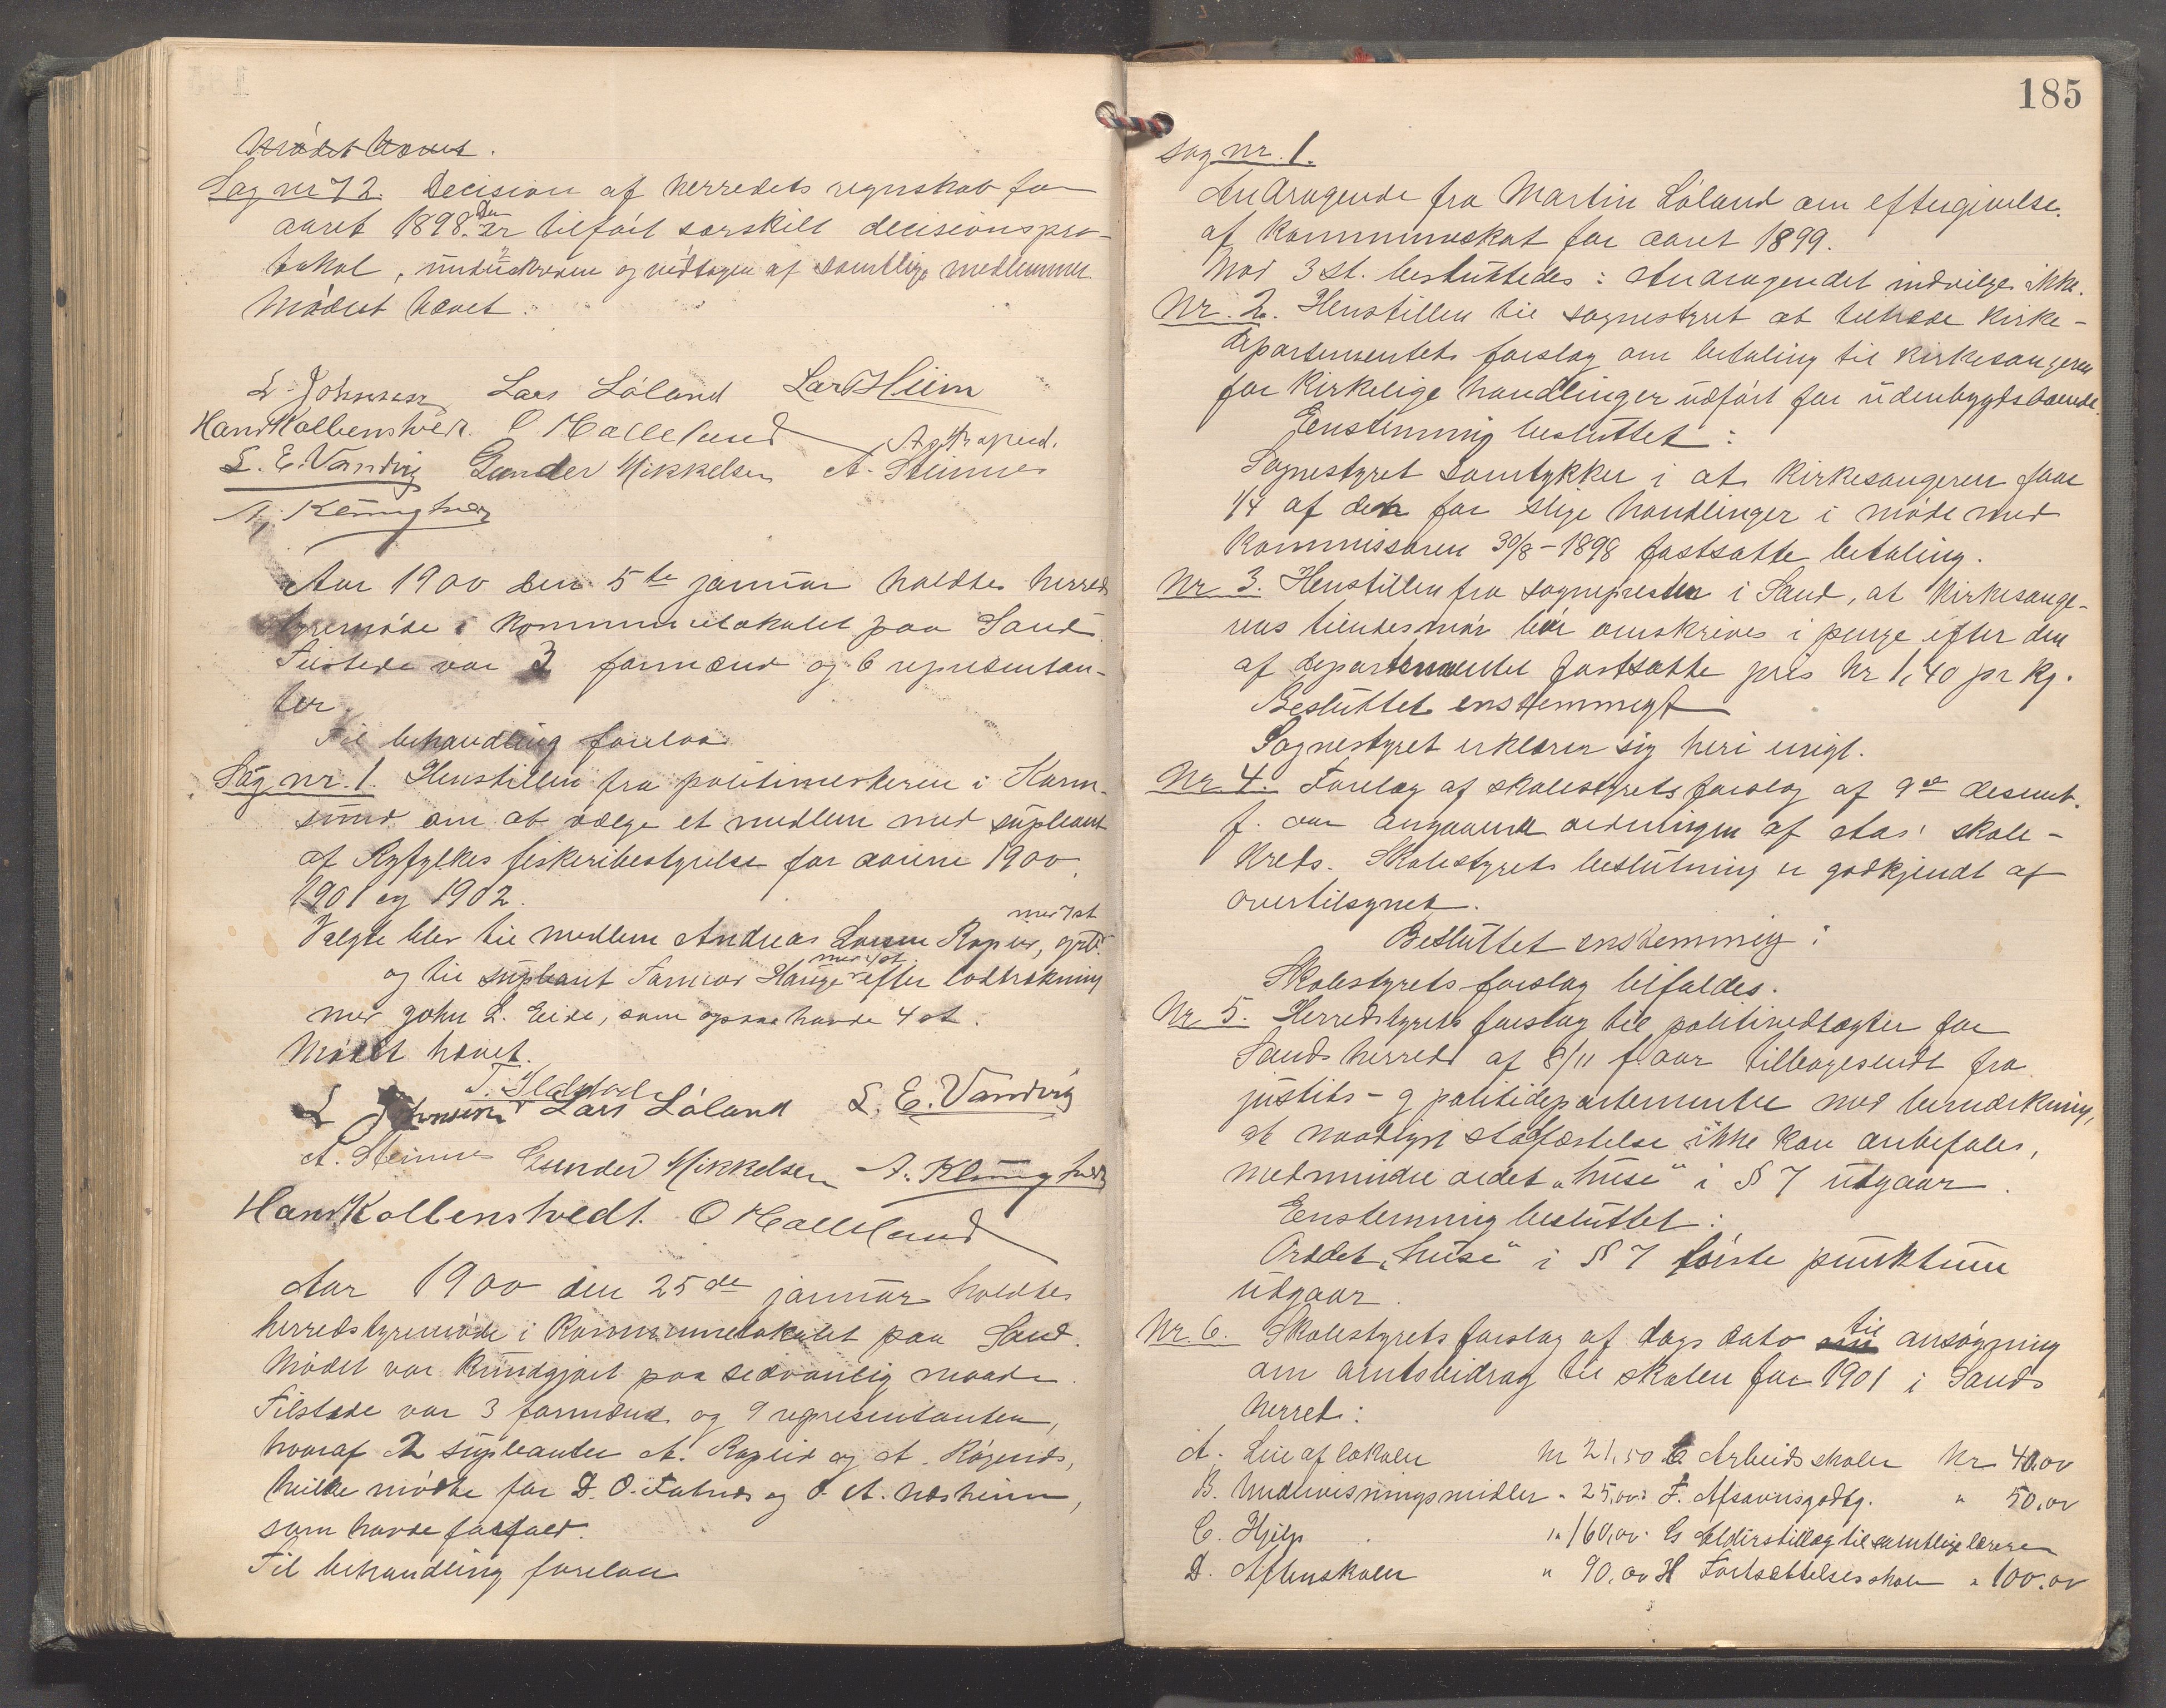 Mödet hævet.
Sag nr 72. Decision af herredets regnskab for
aaret 1898. Den er tilfört særskilt decisionspro-
tokol, underskreven og vedtagen af samtlige medlemmer
Mödet hævet.
L. Johnsen Lars Löland Lars Hiim
Hans Kolbenstvedt. O Halleland
L. E. Vandvig Gunder Mikkelsen A. Steinnes
A. Klungtvedt
Aar 1900 den 5te januar holdtes herreds
styremöde i kommunelokalet paa Sand.
Tilstede var 3 formænd og 6 representan-
ter.
Til behandling forelaa
Sag nr. 1. Henstillen fra politimesteren i Karm-
sund om at vælge et medlem med supleant
af Ryfylkes fiskeribestyrelse for aarene 1900,
1901 og 1902.
med 7 st
Valgte blev til medlem Andreas Larsen Rapeid,
med 4 st.
og til supleant Hauge efter lodtrækning
med John L. Eide, som ogsaa havde 4 st.
Mödet hævet.
L Johnsen Lars Löland L. E. Vandvig
A. Steinnes Gunder Mikkelsen A. Klungtvedt
Hans Kolbenstvedt. O Halleland
Aar 1900 den 25de januar holdtes
herredstyremöde i Kommunelokalet paa Sand.
Mödet var kundgjort paa sedvanlig maade.
Tilstede var 3 formænd og 9 representanter,
hvoraf 2 supleanter A. Rapeid og A. Rögends,
hvilke mödte for D. O. Fatnes og O. A. Næsheim,
som havde forfald.
Til behandling forelaa
185
Sag nr. 1.
Andragende fra Martin Löland om eftergivelse
af kommuneskat for aaret 1899.
Mod 3 st. besluttedes: Andragendet indvilges ikke.
Nr. 2. Henstillen til sognestyret at tiltræde kirke-
departementets forslag om betaling til kirkesangeren
for kirkelige handlinger udfört for udenbygdsboende.
Enstemmig besluttet:
Sognestyret samtykker i at kirkesangeren faar
1/4 af den for slige handlinger i möde med
Kommissæren 30/8-1898 fastsatte betaling.
Nr. 3. Henstillen fra sognepresten i Sand, at kirkesange-
rens tiendesmör bör omskrives i penge efter den
af departementet fastsatte pris kr 1,40 pr kg.
Besluttet enstemmigt
Sognestyret erklærer sig heri enigt.
Nr. 4. Forelag af skolestyrets forslag af 9de desemb.
f. aar angaaende ordningen af Aas' skole-
kreds. Skolestyrets beslutning er godkjendt af
overtilsynet.
Besluttet enstemmig:
Skolestyrets forslag bifaldes.
Nr. 5. Herredstyrets forslag til politivedtægter for
Sands herred af 8/11 f. aar tilbagesendt fra
justits- og politidepartementet med bemærkning,
at naadigst stadfæstelse ikke kan anbefales,
medmindre ordet "huse" i § 7 udgaar.
Enstemmig besluttet:
Ordet "huse" i § 7 förste punktum
udgaar.
Nr. 6. Skolestyrets forslag af dags dato til ansögning
om amtsbidrag til skolen for 1901 i Sands
herred:
A. Leie af lokaler kr 21,50 E Arbeidsskolen kr 40,00
B. Undervisningsmidler " 25,00 F. Afsavnsgodtg. " 50,00
C. Hjelp " 160,00 G Alderstillæg til samtlige lærere
D. Aftenskolen " 90,00 H Fortsættelsesskole " 100,00